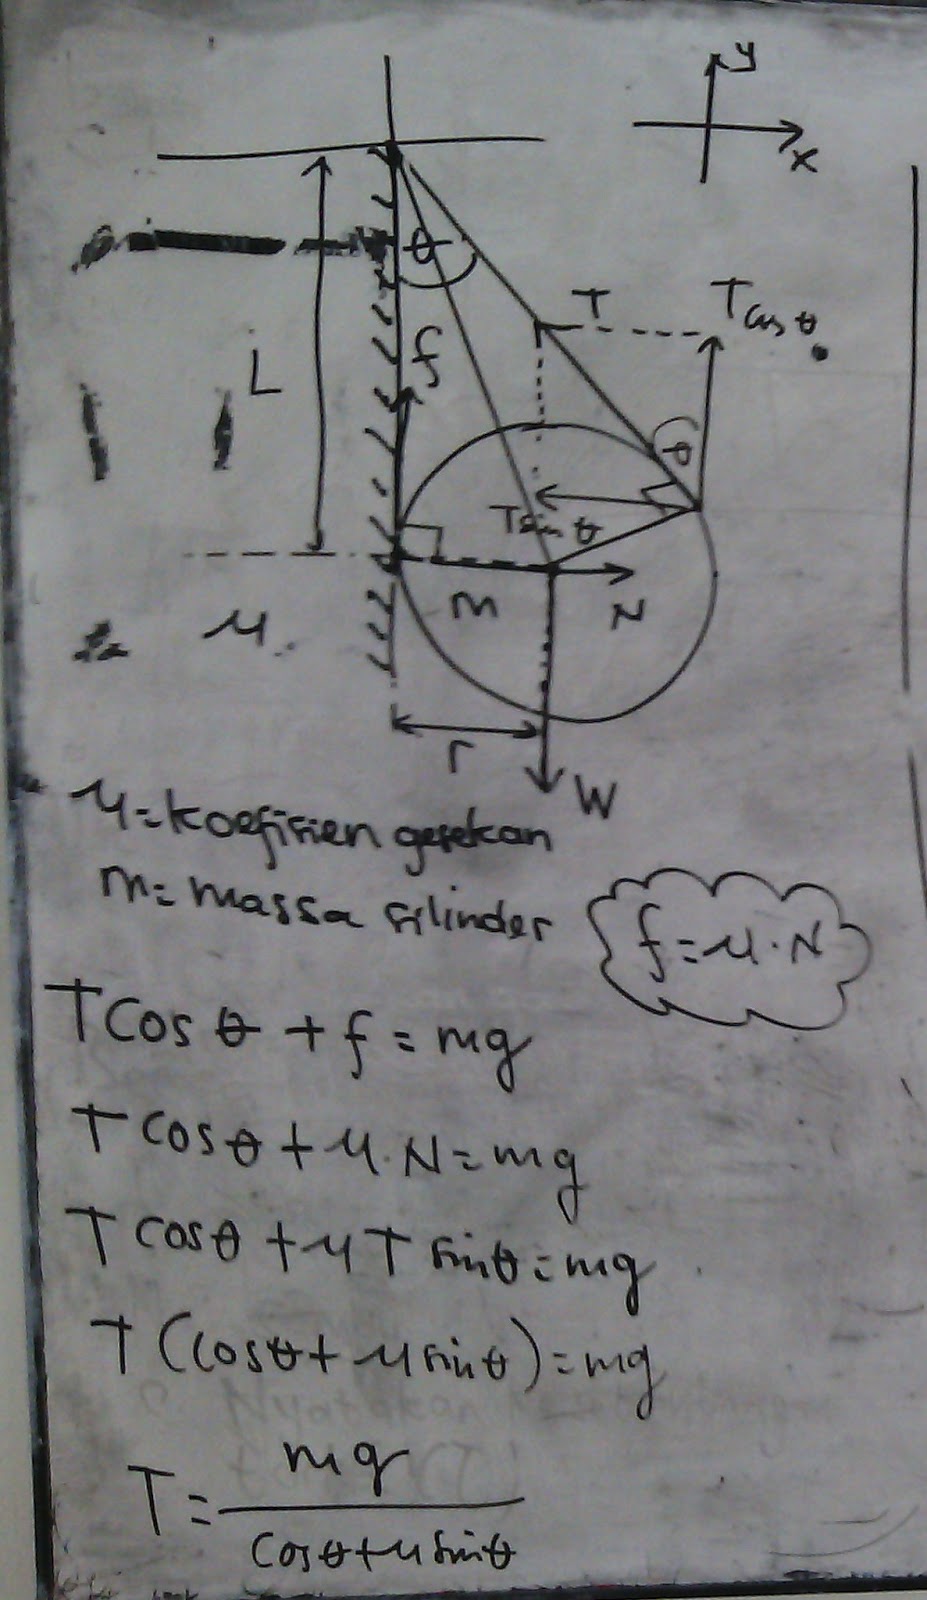 y
x
θ
T
T cos θ
L
f
φ
T sin θ
m
N
μ
r
W
μ = koefisien gesekan
m = massa silinder
f = μ · N
T cos θ + f = mg
T cos θ + μ. N = mg
T cos θ + μ T sin θ = mg
T (cos θ + μ sin θ) = mg
T = mg
cos θ + μ sin θ